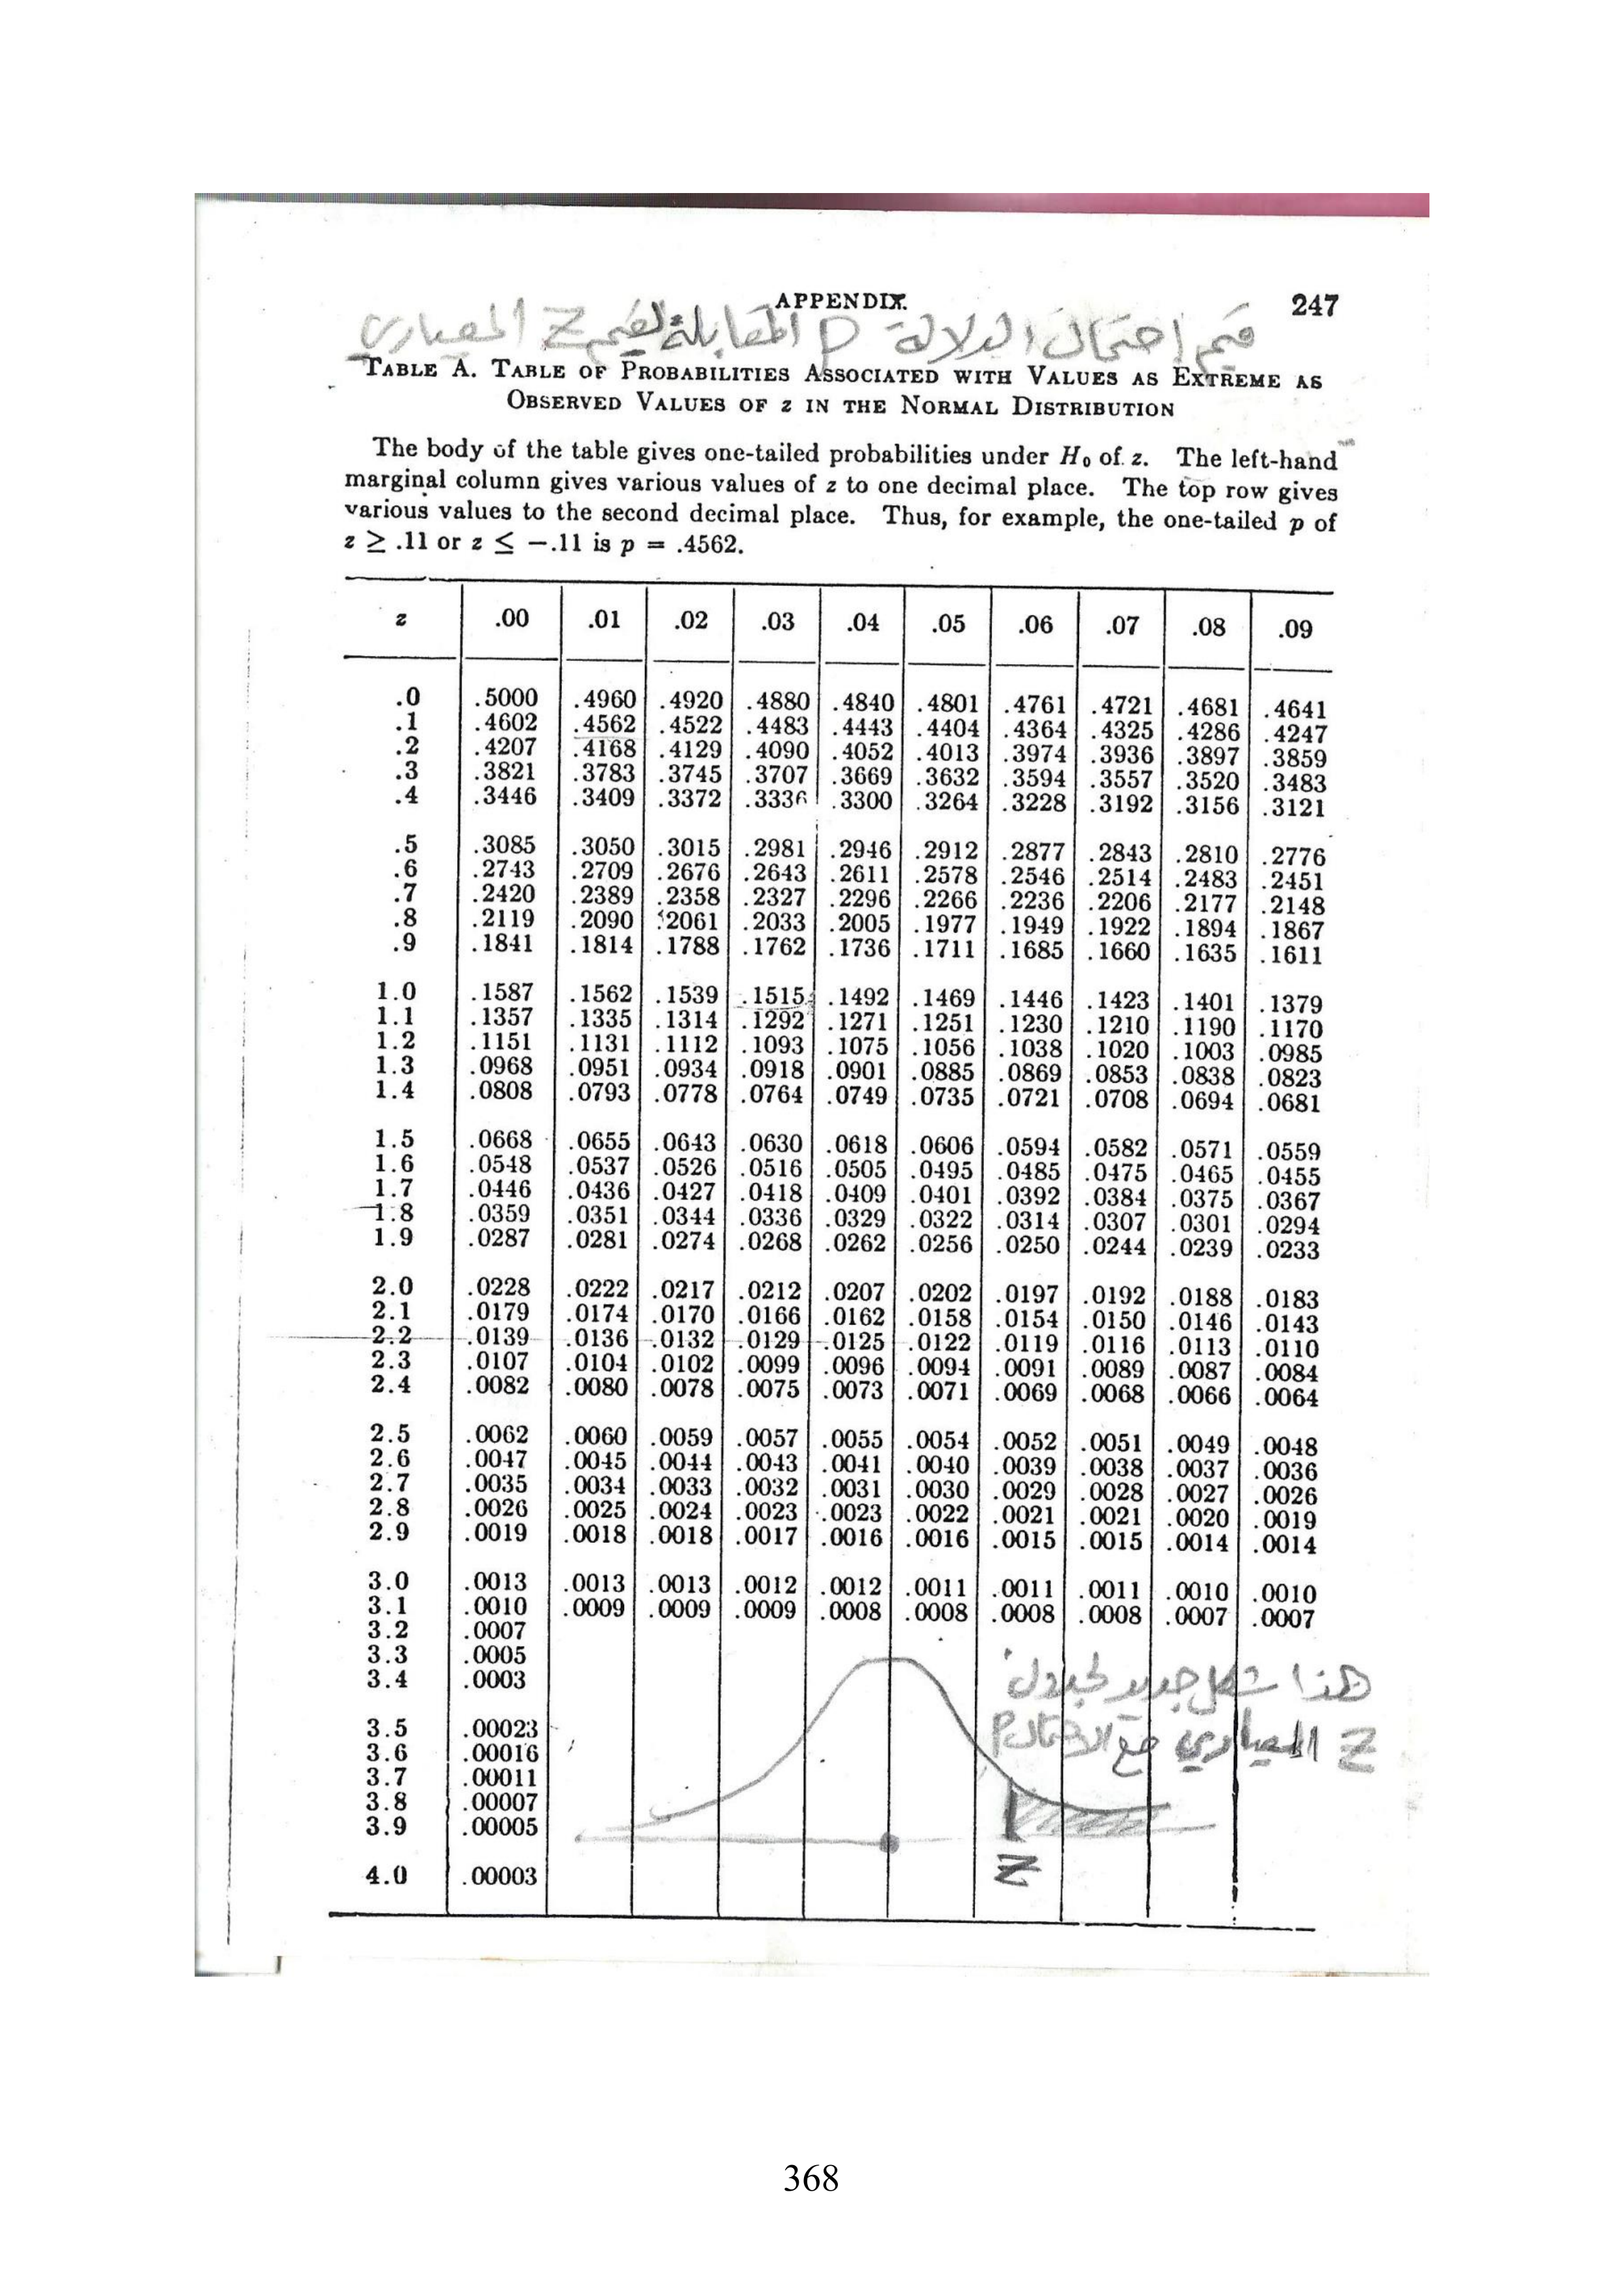 APPENDIX.
247
قيم إحتمال الدلالة P المقابلة لقيم Z المعياري
TABLE A. TABLE OF PROBABILITIES ASSOCIATED WITH VALUES AS EXTREME AS
OBSERVED VALUES OF z IN THE NORMAL DISTRIBUTION
The body of the table gives one-tailed probabilities under H₀ of z. The left-hand
marginal column gives various values of z to one decimal place. The top row gives
various values to the second decimal place. Thus, for example, the one-tailed p of
z ≥ .11 or z ≤ −.11 is p = .4562.
z .00 .01 .02 .03 .04 .05 .06 .07 .08 .09
.0 .5000 .4960 .4920 .4880 .4840 .4801 .4761 .4721 .4681 .4641
.1 .4602 .4562 .4522 .4483 .4443 .4404 .4364 .4325 .4286 .4247
.2 .4207 .4168 .4129 .4090 .4052 .4013 .3974 .3936 .3897 .3859
.3 .3821 .3783 .3745 .3707 .3669 .3632 .3594 .3557 .3520 .3483
.4 .3446 .3409 .3372 .3336 .3300 .3264 .3228 .3192 .3156 .3121
.5 .3085 .3050 .3015 .2981 .2946 .2912 .2877 .2843 .2810 .2776
.6 .2743 .2709 .2676 .2643 .2611 .2578 .2546 .2514 .2483 .2451
.7 .2420 .2389 .2358 .2327 .2296 .2266 .2236 .2206 .2177 .2148
.8 .2119 .2090 .2061 .2033 .2005 .1977 .1949 .1922 .1894 .1867
.9 .1841 .1814 .1788 .1762 .1736 .1711 .1685 .1660 .1635 .1611
1.0 .1587 .1562 .1539 .1515 .1492 .1469 .1446 .1423 .1401 .1379
1.1 .1357 .1335 .1314 .1292 .1271 .1251 .1230 .1210 .1190 .1170
1.2 .1151 .1131 .1112 .1093 .1075 .1056 .1038 .1020 .1003 .0985
1.3 .0968 .0951 .0934 .0918 .0901 .0885 .0869 .0853 .0838 .0823
1.4 .0808 .0793 .0778 .0764 .0749 .0735 .0721 .0708 .0694 .0681
1.5 .0668 .0655 .0643 .0630 .0618 .0606 .0594 .0582 .0571 .0559
1.6 .0548 .0537 .0526 .0516 .0505 .0495 .0485 .0475 .0465 .0455
1.7 .0446 .0436 .0427 .0418 .0409 .0401 .0392 .0384 .0375 .0367
1.8 .0359 .0351 .0344 .0336 .0329 .0322 .0314 .0307 .0301 .0294
1.9 .0287 .0281 .0274 .0268 .0262 .0256 .0250 .0244 .0239 .0233
2.0 .0228 .0222 .0217 .0212 .0207 .0202 .0197 .0192 .0188 .0183
2.1 .0179 .0174 .0170 .0166 .0162 .0158 .0154 .0150 .0146 .0143
2.2 .0139 .0136 .0132 .0129 .0125 .0122 .0119 .0116 .0113 .0110
2.3 .0107 .0104 .0102 .0099 .0096 .0094 .0091 .0089 .0087 .0084
2.4 .0082 .0080 .0078 .0075 .0073 .0071 .0069 .0068 .0066 .0064
2.5 .0062 .0060 .0059 .0057 .0055 .0054 .0052 .0051 .0049 .0048
2.6 .0047 .0045 .0044 .0043 .0041 .0040 .0039 .0038 .0037 .0036
2.7 .0035 .0034 .0033 .0032 .0031 .0030 .0029 .0028 .0027 .0026
2.8 .0026 .0025 .0024 .0023 .0023 .0022 .0021 .0021 .0020 .0019
2.9 .0019 .0018 .0018 .0017 .0016 .0016 .0015 .0015 .0014 .0014
3.0 .0013 .0013 .0013 .0012 .0012 .0011 .0011 .0011 .0010 .0010
3.1 .0010 .0009 .0009 .0009 .0008 .0008 .0008 .0008 .0007 .0007
3.2 .0007
3.3 .0005
3.4 .0003
3.5 .00023
3.6 .00016
3.7 .00011
3.8 .00007
3.9 .00005
4.0 .00003
هذا شكل جديد لجدول
Z المعياري مع الاحتمال P
Z
368